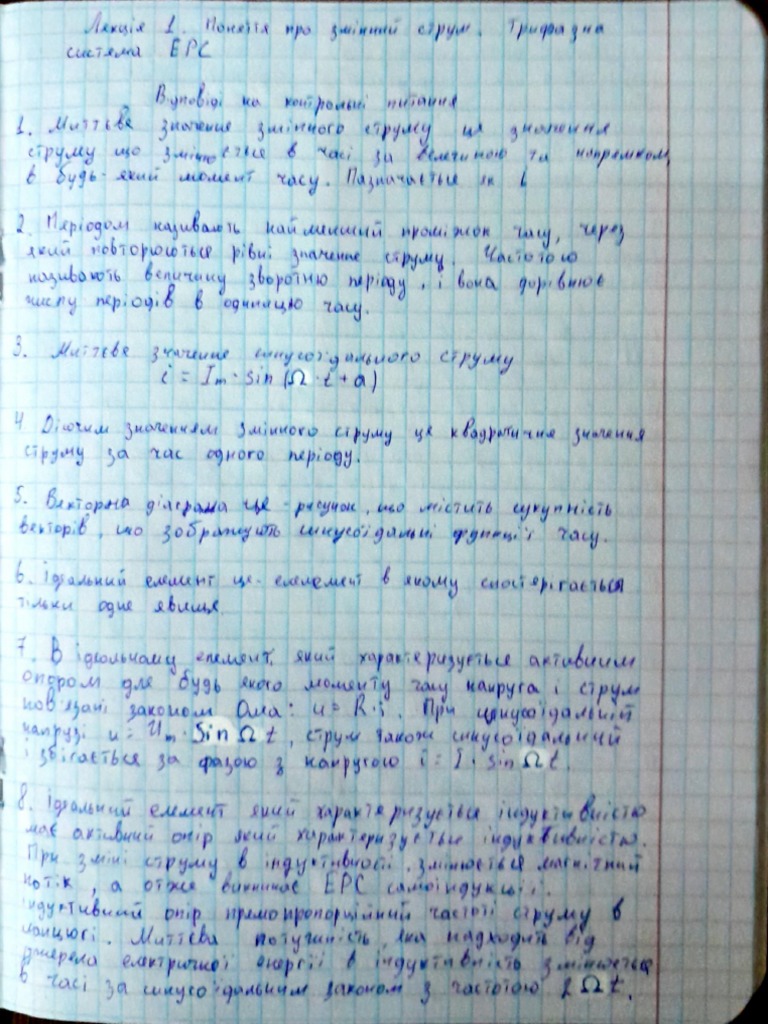 Лекція 1. Поняття про змінний струм. Трифазна
система ЕРС
Відповіді на контрольні питання
1. Миттєве значення змінного струму це значення
струму що змінюється в часі за величиною та напрямком
в будь-який момент часу. Пазначається як i
2. Періодом називають найменший проміжок часу, через
який повторюються рівні значення струму. Частотою
називають величину зворотню періоду, і вона дорівнює
числу періодів в одиницю часу.
3. Миттєве значення синусоїдального струму
i = Im · sin (Ω · t + a)
4 Діючим значенням змінного струму це квадратичне значення
струму за час одного періоду.
5. Векторна діаграма це - рисунок, що містить сукупність
векторів, що зображують синусоїдальні функції часу.
6. Ідеальний елемент це - елемент в якому спостерігається
тільки одне явище
7. В ідеальному елементі, який характеризується активним
опором для будь якого моменту часу напруга і струм
пов'язані законом Ома: u = R · i. При синусоїдальній
напрузі u = Um · Sin Ω t, струм також синусоїдальний
і збігається за фазою з напругою i = I · sin Ω t.
8. Ідеальний елемент який характеризується індуктивністю
має активний опір який характеризується індуктивністю.
При зміні струму в індуктивності, змінюється магнітний
потік, а отже виникає ЕРС самоіндукції.
Індуктивний опір прямопропорційний частоті струму в
ланцюгі. Миттєва потужність, яка надходить від
джерела електричної енергії в індуктивність змінюється
в часі за синусоїдальним законом з частотою 2 Ω t.